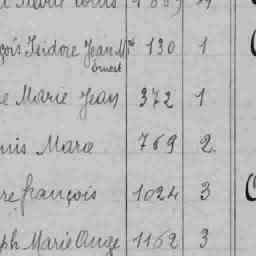 Marie Louis
çois Isidore Jean Mie 130 1
Ernest
e Marie Jean 372 1
nis Marie 769 2
re françois 1024 3
ph Marie Ange 1162 3